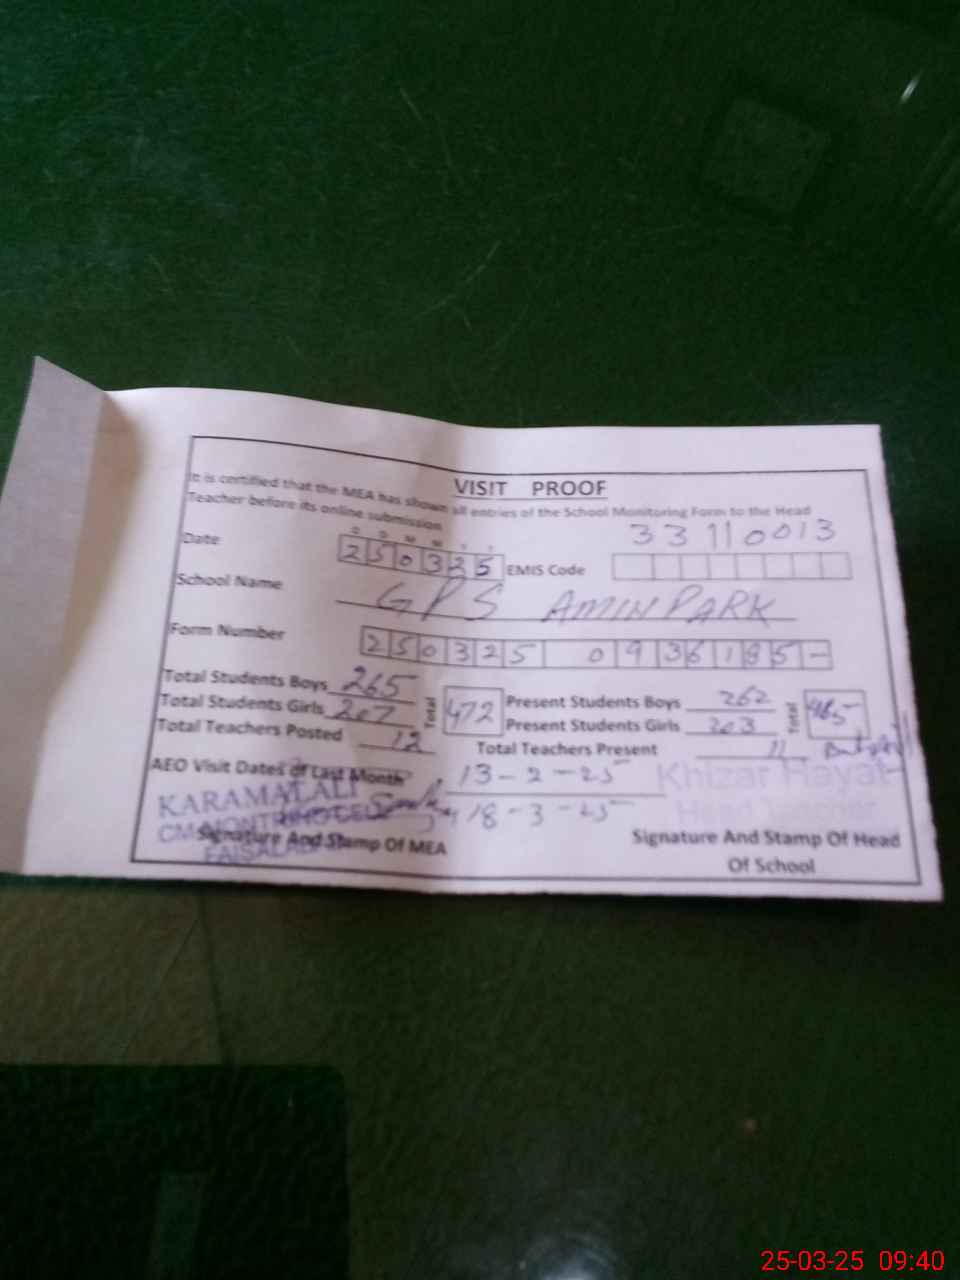 VISIT PROOF
It is certified that the MEA has shown all entries of the School Monitoring Form to the Head
Teacher before its online submission
D D M M Y Y
Date 250325 EMIS Code 33110013
School Name GPS AMIN PARK
Form Number 250325 0936185-
Total Students Boys 265 Total 472 Present Students Boys 262 Total 465
Total Students Girls 207 Present Students Girls 203
Total Teachers Posted 12 Total Teachers Present 11
AEO Visit Dates of Last Month 13-2-25
18-3-25
KARAMAT ALI
Khizar Hayat
Head Teacher
Signature And Stamp Of MEA
FAISALABAD
Signature And Stamp Of Head
Of School
25-03-25 09:40